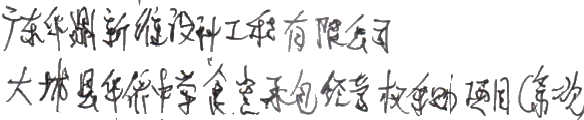 广东华鼎新维设计工程有限公司
大埔县华侨中学食堂承包经营权采购项目(第一次